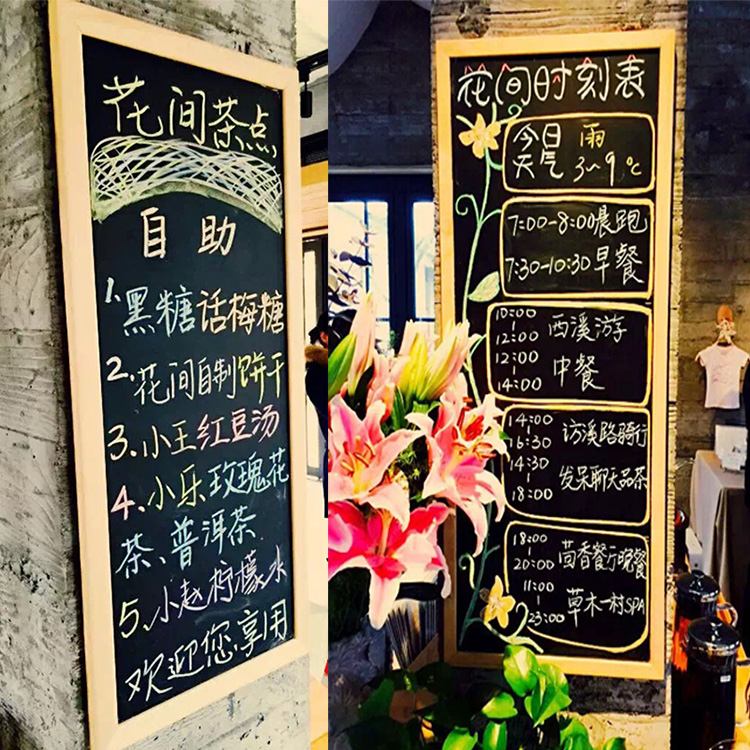 花间茶点
自助
1、黑糖话梅糖
2、花间自制饼干
3、小王红豆汤
4、小乐玫瑰花
茶、普洱茶
5、小赵柠檬水
欢迎您享用
花间时刻表
今日 雨
天气 3~9℃
7:00-8:00晨跑
7:30-10:30早餐
10:00
|
12:00 西溪游
12:00
|
14:00 中餐
14:00
|
16:30 访溪路骑行
14:30
|
18:00 发呆聊天品茶
18:00
|
20:00 茴香餐厅晚餐
11:00
|
23:00 草木一村SPA